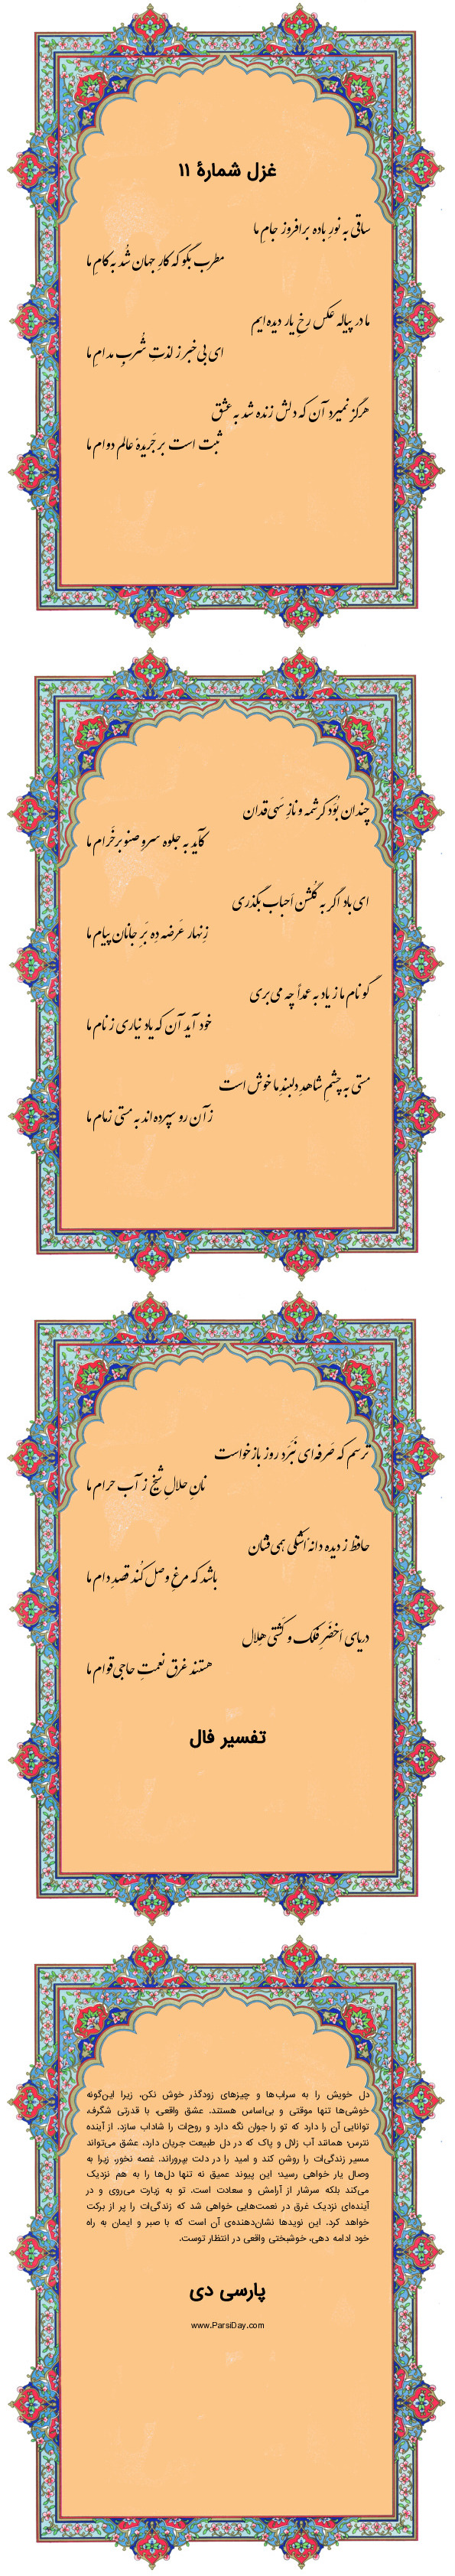 غزل شمارهٔ ۱۱
ساقی به نورِ باده برافروز جامِ ما
مطرب بگو که کارِ جهان شُد به کامِ ما
ما در پیاله عکس رخِ یار دیده‌ایم
ای بی‌خبر ز لذتِ شُربِ مدامِ ما
هرگز نمیرد آن که دلش زنده شد به عشق
ثبت است بر جَریدهٔ عالم دوامِ ما
چندان بُوَد کرشمه و نازِ سَهی‌قدان
کآید به جلوه سروِ صنوبرخَرامِ ما
ای باد اگر به گُلشن اَحباب بگذری
زِنهار عَرضه دِه بَرِ جانان پیام ما
گو نام ما ز یاد به عمداً چه می‌بری
خود آید آن که یاد نیاری ز نام ما
مستی به چشمِ شاهدِ دلبندِ ما خوش است
زآن رو سپرده‌اند به مستی زمام ما
ترسم که صَرفه‌ای نَبَرَد روز بازخواست
نانِ حلالِ شیخ ز آب حرام ما
حافظ ز دیده دانهٔ اشکی همی‌فشان
باشد که مرغِ وصل کُند قصدِ دام ما
دریای اَخضَرِ فلک و کَشتی هِلال
هستند غرق نعمتِ حاجی‌قوام ما
تفسیر فال
دل خویش را به سراب‌ها و چیزهای زودگذر خوش نکن، زیرا این‌گونه
خوشی‌ها تنها موقتی و بی‌اساس هستند. عشق واقعی، با قدرتی شگرف،
توانایی آن را دارد که تو را جوان نگه دارد و روح‌ات را شاداب سازد. از آینده
نترس؛ همانند آب زلال و پاک که در دل طبیعت جریان دارد، عشق می‌تواند
مسیر زندگی‌ات را روشن کند و امید را در دلت بپروراند. غصه نخور، زیرا به
وصال یار خواهی رسید؛ این پیوند عمیق نه تنها دل‌ها را به هم نزدیک
می‌کند بلکه سرشار از آرامش و سعادت است. تو به زیارت می‌روی و در
آینده‌ای نزدیک غرق در نعمت‌هایی خواهی شد که زندگی‌ات را پر از برکت
خواهد کرد. این نویدها نشان‌دهنده‌ی آن است که با صبر و ایمان به راه
خود ادامه دهی، خوشبختی واقعی در انتظار توست.
پارسی دی
www.ParsiDay.com